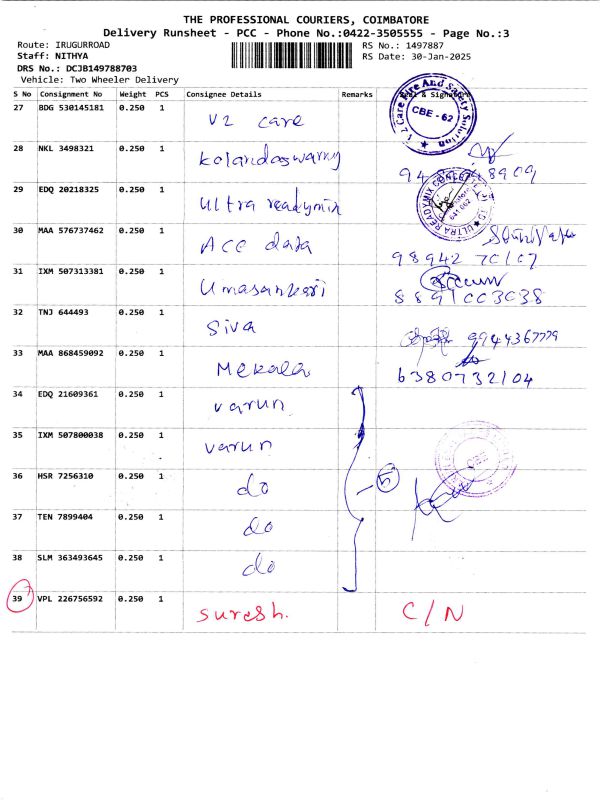 THE PROFESSIONAL COURIERS, COIMBATORE
Delivery Runsheet - PCC - Phone No.:0422-3505555 - Page No.:3
Route: IRUGURROAD RS No.: 1497887
Staff: NITHYA RS Date: 30-Jan-2025
DRS No.: DCJB149788703
Vehicle: Two Wheeler Delivery
S No Consignment No Weight PCS Consignee Details Remarks & Signature
27 BDG 530145181 0.250 1 V2 care
Z Care Fire And Safety Solution CBE - 62
28 NKL 3498321 0.250 1 Kolandaswamy 8909
29 EDQ 20218325 0.250 1 Ultra readymix
ULTRA READYMIX CONCRETE 641 062
30 MAA 576737462 0.250 1 ACC data 98942
31 IXM 507313381 0.250 1 Umasankari 8891003038
32 TNJ 644493 0.250 1 Siva 9944367779
33 MAA 868459092 0.250 1 Mekala 6380732104
34 EDQ 21609361 0.250 1 varun
35 IXM 507800038 0.250 1 varun
CBE
36 HSR 7256310 0.250 1 do 5
37 TEN 7899404 0.250 1 do
38 SLM 363493645 0.250 1 do
39 VPL 226756592 0.250 1 suresh. C/N